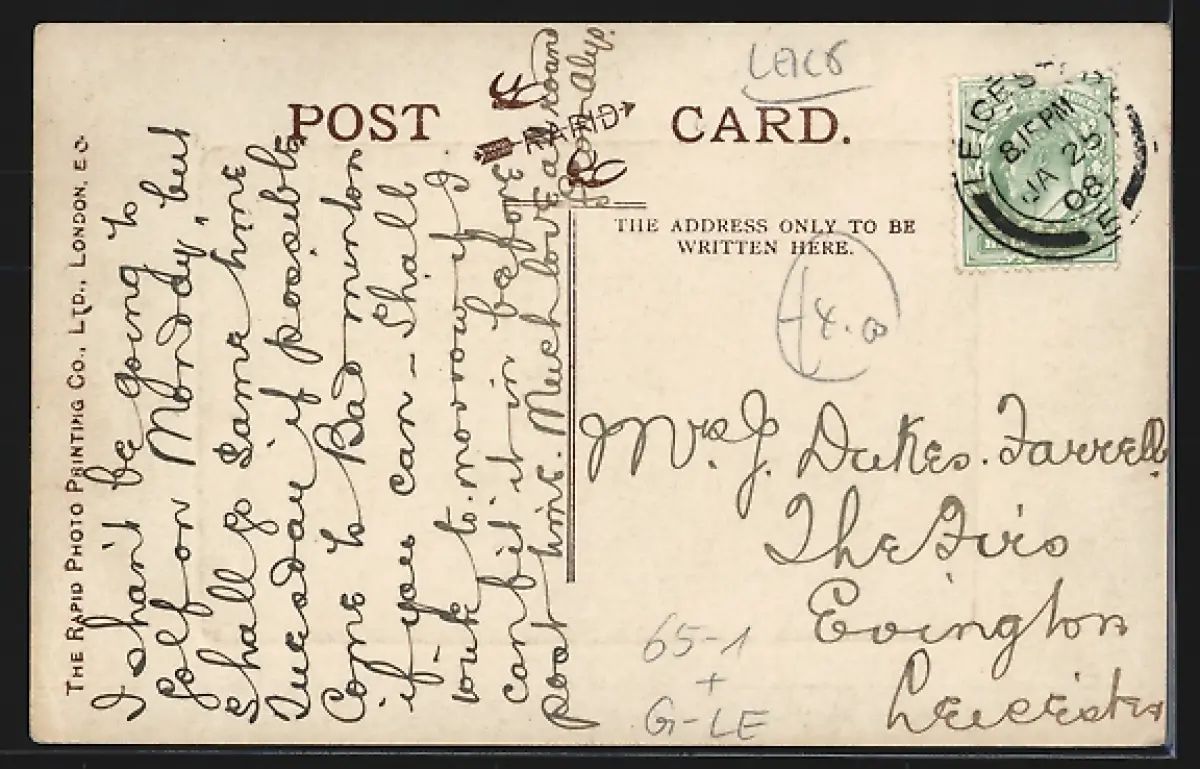 POST CARD.
RAPID
THE ADDRESS ONLY TO BE
WRITTEN HERE.
THE RAPID PHOTO PRINTING CO., LTD., LONDON, E.C.
LEICES
8/15 PM
JA 25
08
E
I shan't be going to
golf on Monday, but
shall go same time
Tuesday if possible.
Come to Badminton
if you can – Shall
write to-morrow if I
can fit it in before
post time. Much love
Mrs. J. Dukes. Farrell.
The Firs
Evington
Leicester
4.00
65-1
+
G-LE